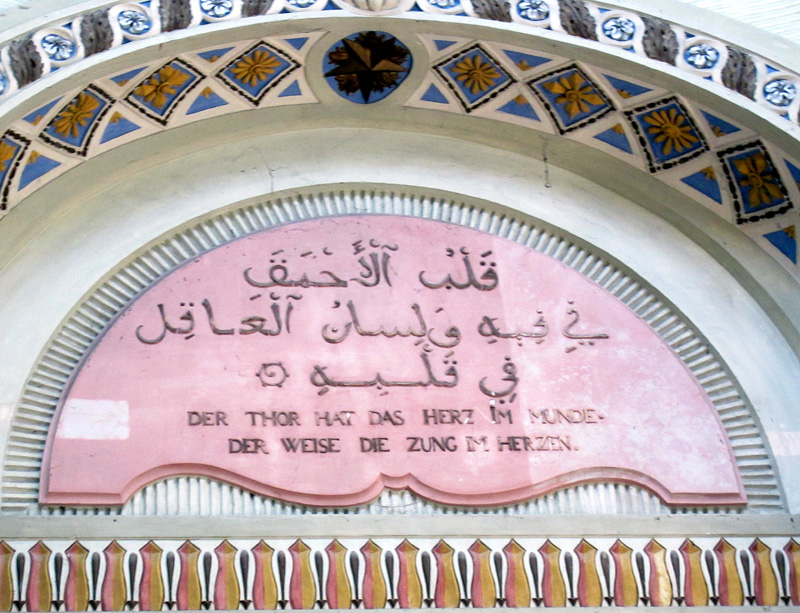 قَلْبُ ٱلْأَحمَقِ
فِي فِيهِ وَلِسانُ ٱلْعاقِلِ
فِي قَلْبِهِ
DER THOR HAT DAS HERZ IM MUNDE.
DER WEISE DIE ZUNG IM HERZEN.